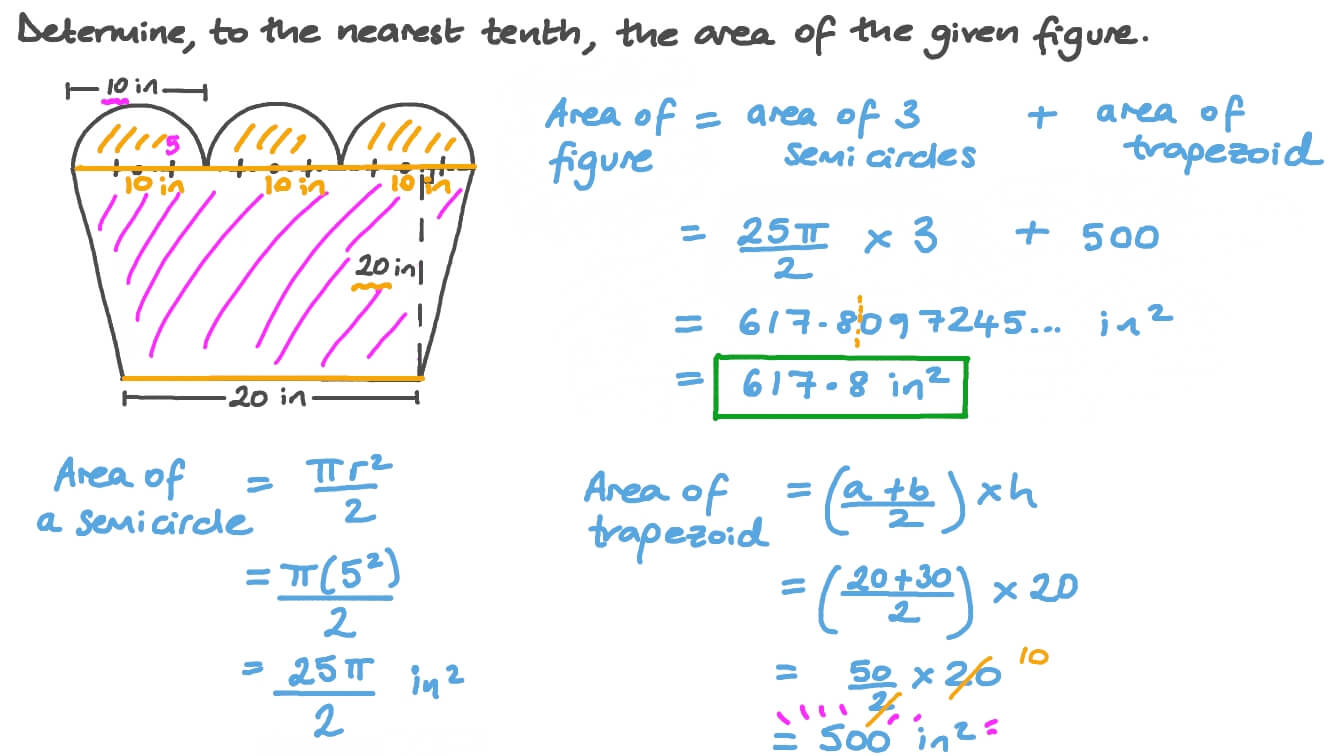 Determine, to the nearest tenth, the area of the given figure.
10 in
5
10 in 10 in 10 in
20 in
20 in
Area of figure = area of 3 semi circles + area of trapezoid
= 25π/2 × 3 + 500
= 617.8097245... in²
= 617.8 in²
Area of a semicircle = πr²/2
= π(5²)/2
= 25π/2 in²
Area of trapezoid = (a+b/2) × h
= (20+30/2) × 20
= 50/2 × 20 10
= 500 in²